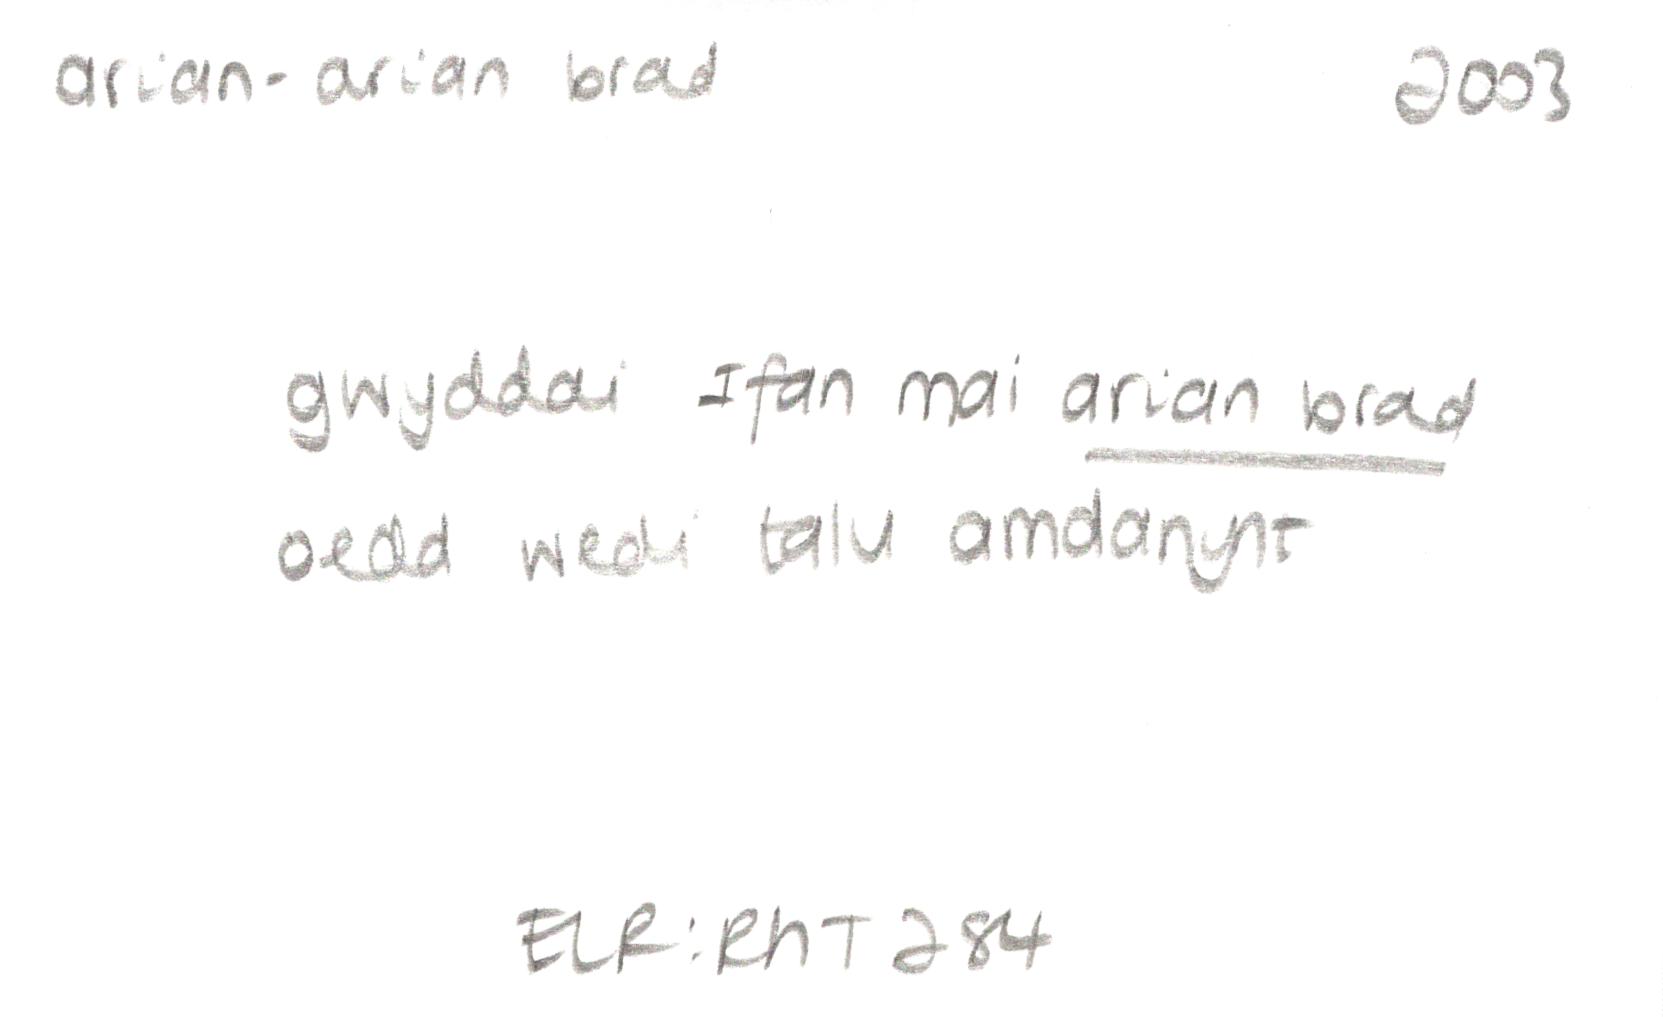 arian-arian brad 2003
gwyddai Ifan mai arian brad
oedd wedi talu amdanynt
ELR:RhT 284